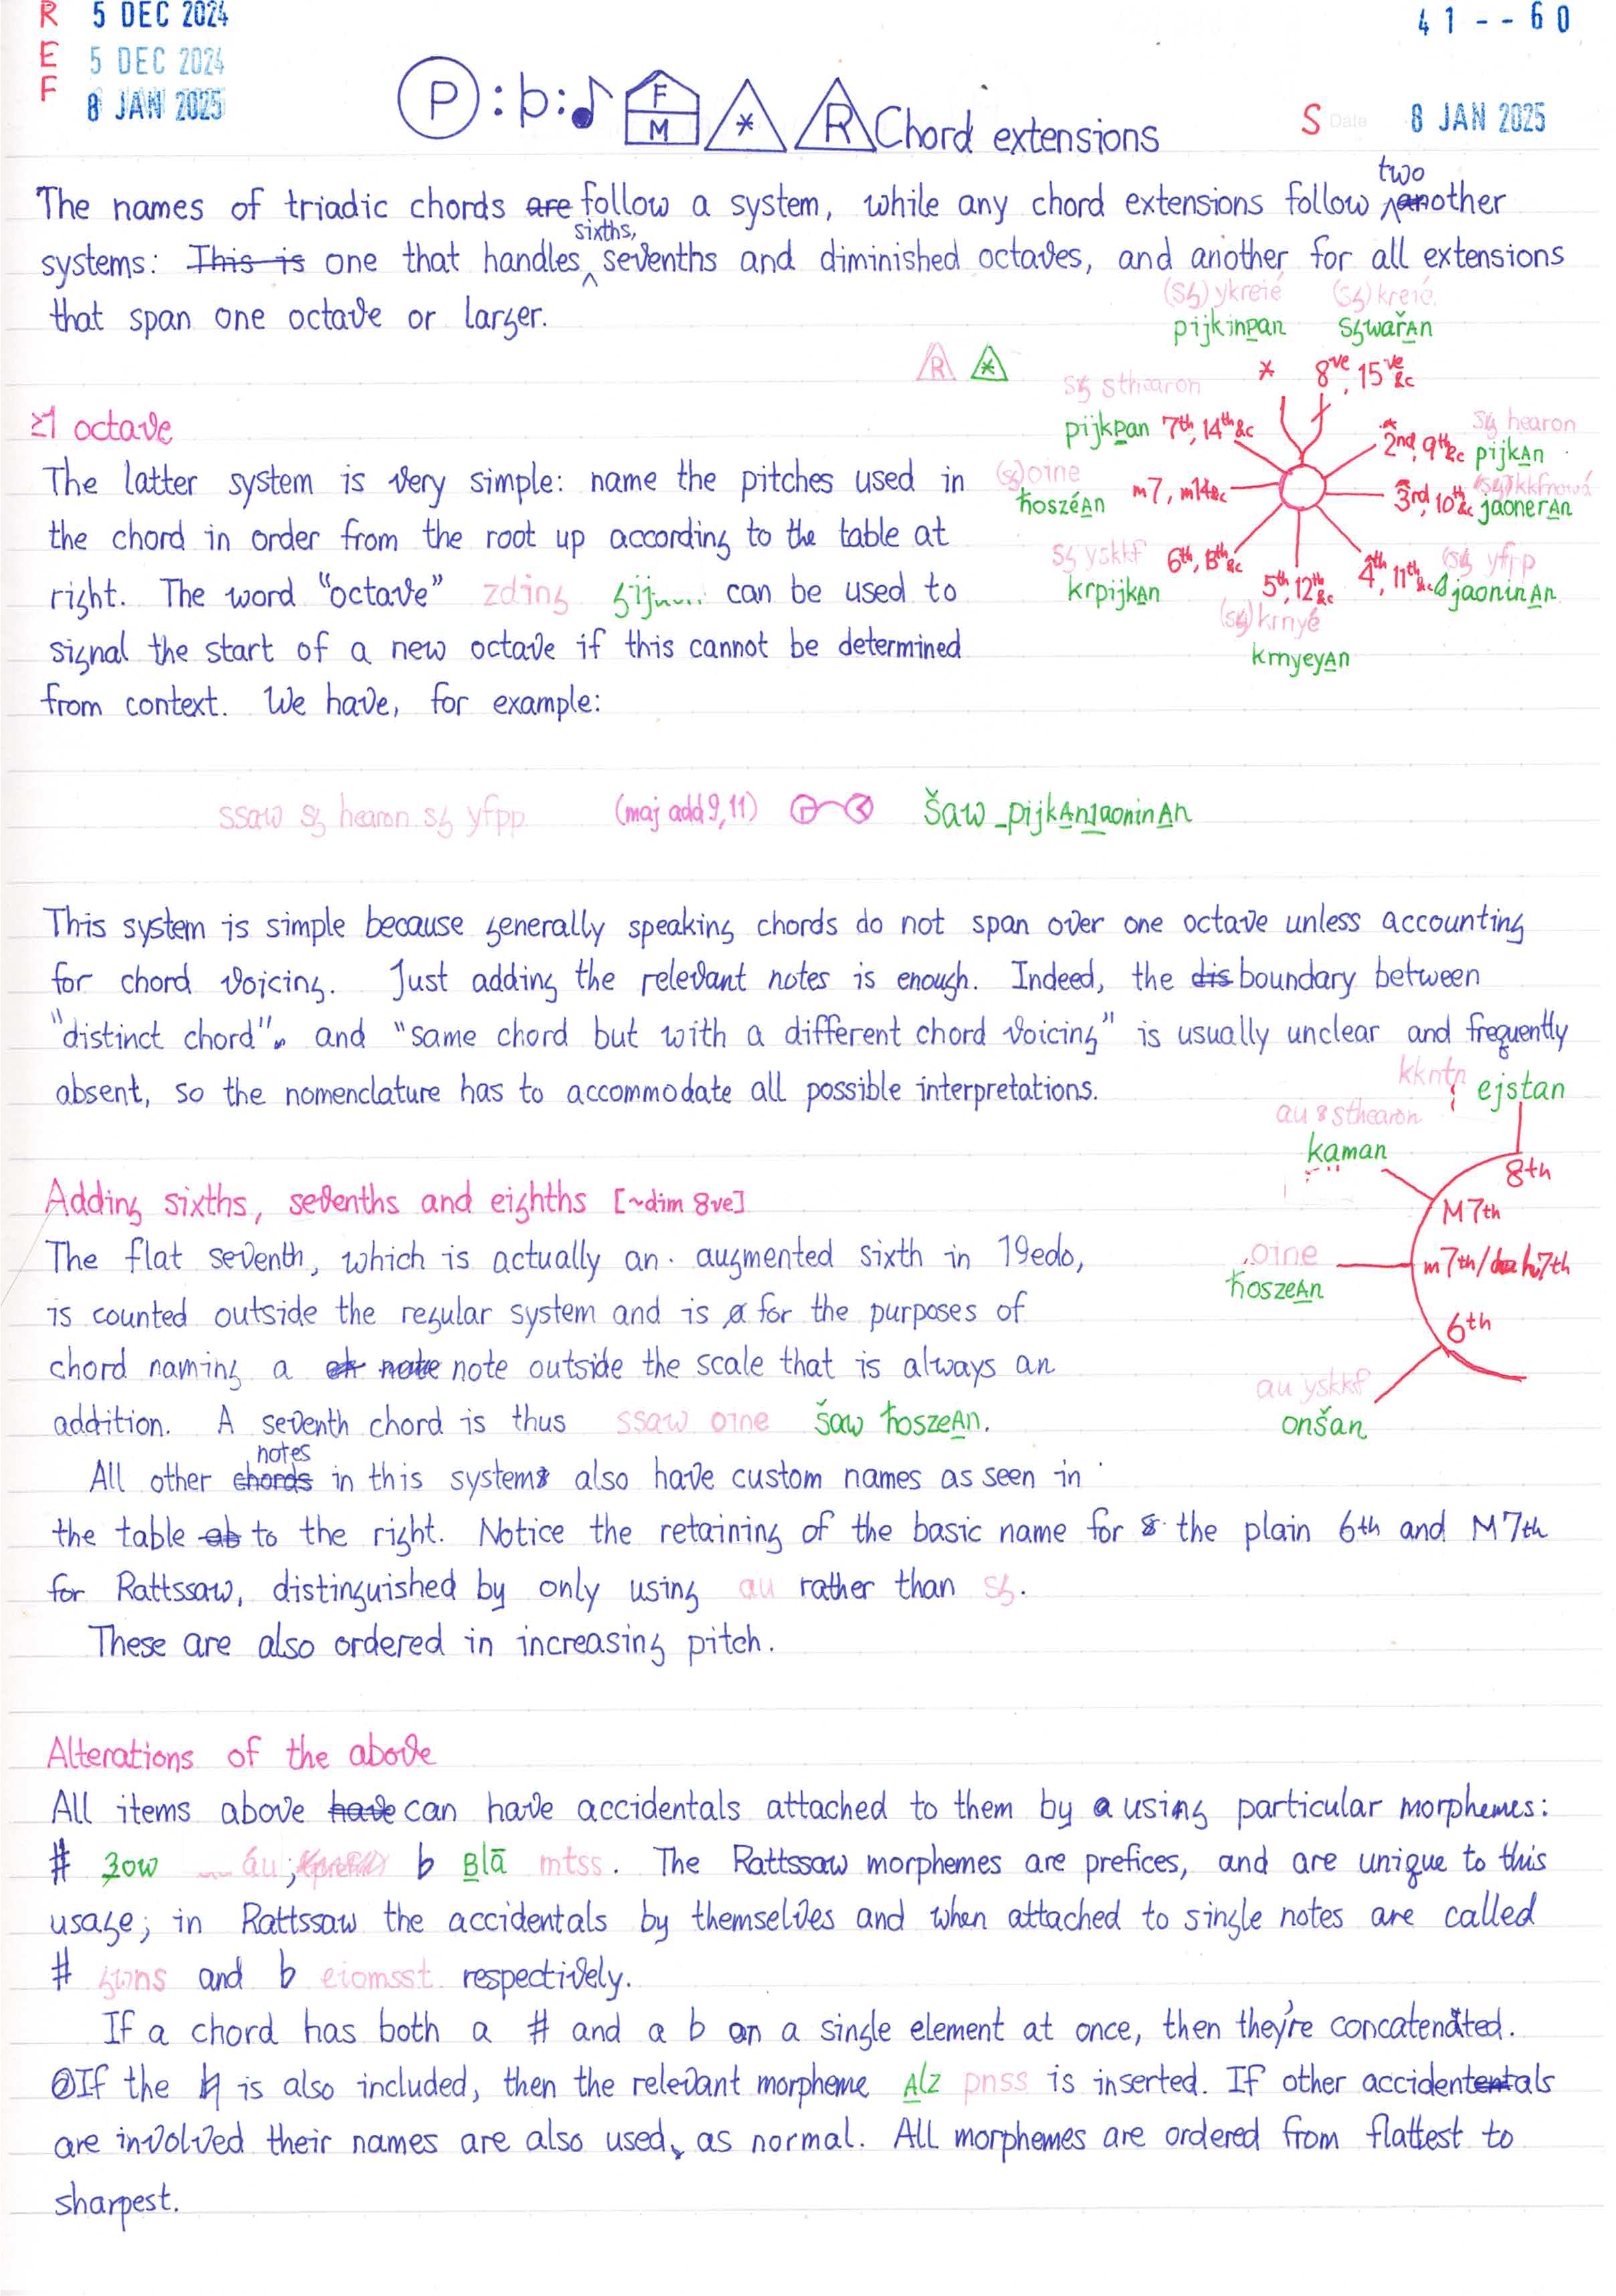 R 5 DEC 2024
E 5 DEC 2024
F 8 JAN 2025
41--60
P : b : ♪ F M * R Chord extensions
S Date 8 JAN 2025
The names of triadic chords are follow a system, while any chord extensions follow two another
systems: This is one that handles sixths, sevenths and diminished octaves, and another for all extensions
that span one octave or larger.
R *
(sg) ykreié
pijkinpan
*
(sg) kreié
sgwařAn
8ve, 15ve &c
sg hearon
2nd, 9th &c pijkAn
3rd, 10th &c jaonerAn
(sg) yfrp
4th, 11th &c jaoninAn
5th, 12th &c
(sg) krnyé
krnyeyAn
sg yskkf 6th, 13th &c
krpijkAn
(sg) oine m7, m14 &c
ħoszéAn
sg sthearon
pijkpan 7th, 14th &c
≥1 octave
The latter system is very simple: name the pitches used in
the chord in order from the root up according to the table at
right. The word "octave" zding can be used to
signal the start of a new octave if this cannot be determined
from context. We have, for example:
ssaw sg hearon sg yfpp (maj add 9, 11) šaw pijkAnjaoninAn
This system is simple because generally speaking chords do not span over one octave unless accounting
for chord voicing. Just adding the relevant notes is enough. Indeed, the dis boundary between
"distinct chord" and "same chord but with a different chord voicing" is usually unclear and frequently
absent, so the nomenclature has to accommodate all possible interpretations.
kkntn ejstan
8th
au sthearon
kaman
M 7th
oine
ħoszeAn
m7th/ 7th
6th
au yskkf
onšan
Adding sixths, sevenths and eighths [~dim 8ve]
The flat seventh, which is actually an augmented sixth in 19edo,
is counted outside the regular system and is for the purposes of
chord naming a note note outside the scale that is always an
addition. A seventh chord is thus ssaw oine šaw ħoszeAn.
All other chords notes in this system also have custom names as seen in
the table ab to the right. Notice the retaining of the basic name for the plain 6th and M 7th
for Rattssaw, distinguished by only using au rather than sg.
These are also ordered in increasing pitch.
Alterations of the above
All items above have can have accidentals attached to them by a using particular morphemes:
# ʒow áu; b Blā mtss. The Rattssaw morphemes are prefices, and are unique to this
usage; in Rattssaw the accidentals by themselves and when attached to single notes are called
# and b eiomsst respectively.
If a chord has both a # and a b on a single element at once, then they're concatenated.
If the ♮ is also included, then the relevant morpheme Alz pnss is inserted. If other accidentals
are involved their names are also used, as normal. All morphemes are ordered from flattest to
sharpest.